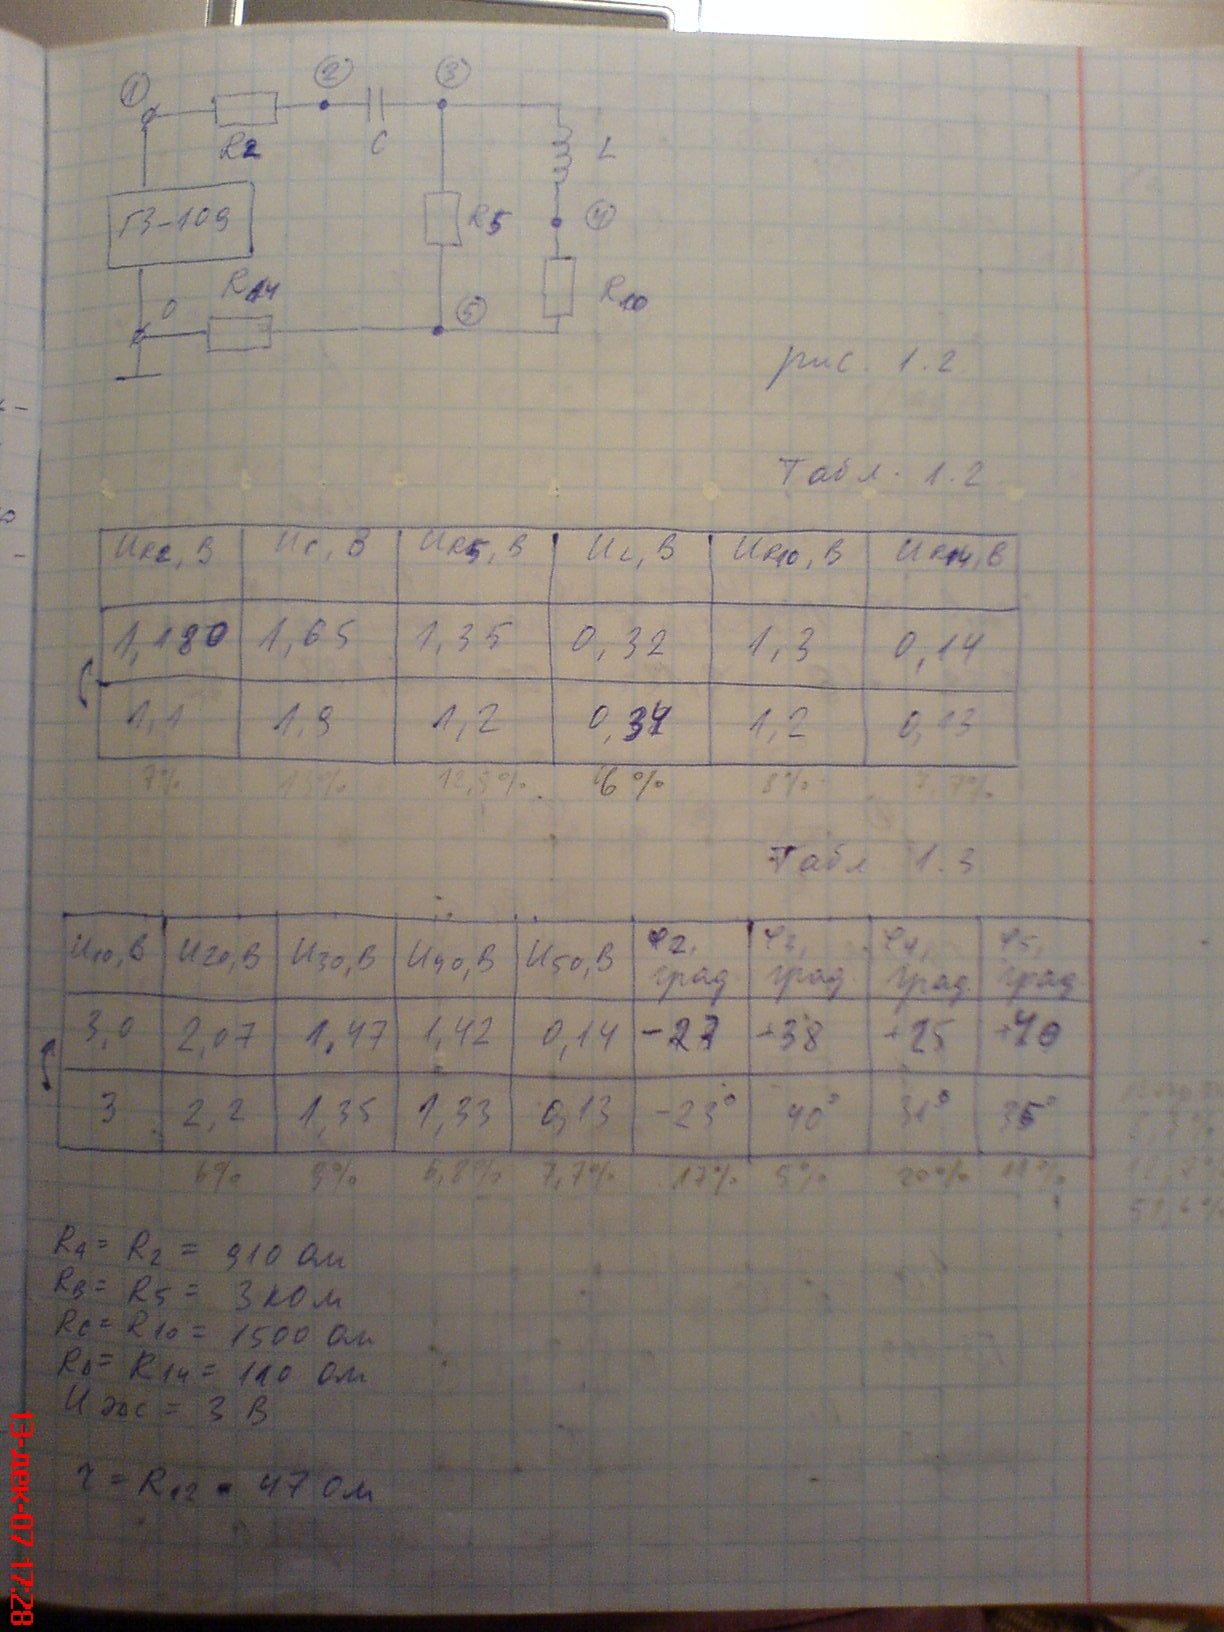 ① ② ③
R2 C L
ГЗ-109 R5 ④
R14 R10
0 ⑤
рис. 1.2
Табл. 1.2
UR2, В UC, В UR5, В UL, В UR10, В UR14, В
1,180 1,65 1,35 0,32 1,3 0,14
1,1 1,9 1,2 0,34 1,2 0,13
7% 12,5% 6% 8% 7,7%
Табл. 1.3
U10, В U20, В U30, В U40, В U50, В φ2, град φ3, град φ4, град φ5, град
3,0 2,07 1,47 1,42 0,14 -27 +38 +25 +40
3 2,2 1,35 1,33 0,13 -23° 40° 31° 36°
6% 9% 6,8% 7,7% 17% 5% 20% 11%
RA = R2 = 910 Ом
RB = R5 = 3 кОм
RC = R10 = 1500 Ом
RD = R14 = 110 Ом
U эдс = 3 В
r = R12 = 47 Ом
13-дек-07 17:28